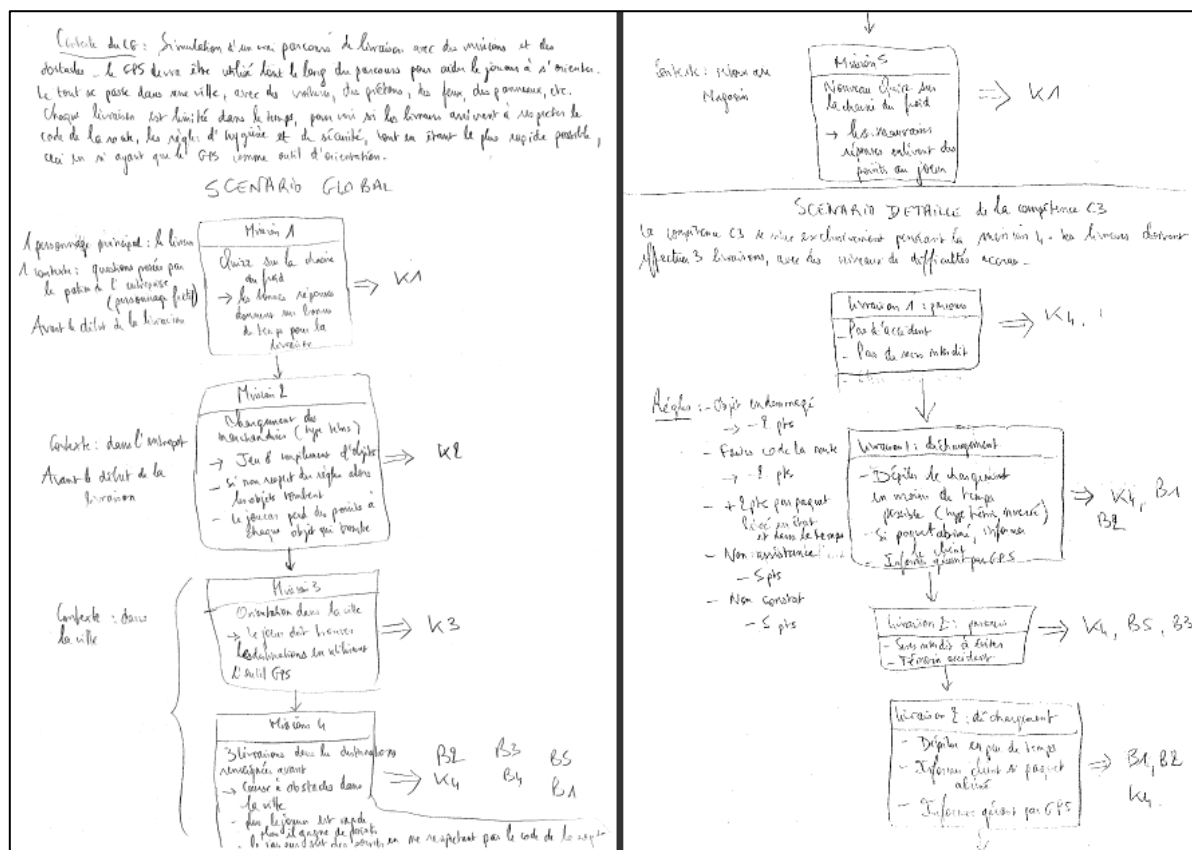 Contexte du LG : Simulation d'un vrai parcours de livraison avec des missions et des
obstacles - le GPS devra être utilisé tout le long du parcours pour aider le joueur à s'orienter.
Le tout se passe dans une ville, avec des voitures, des piétons, des feux, des panneaux, etc.
Chaque livraison est limitée dans le temps, pour voir si les livreurs arrivent à respecter le
code de la route, les règles d'hygiène et de sécurité, tout en étant le plus rapide possible,
ceci en n'ayant que le GPS comme outil d'orientation.
SCENARIO GLOBAL
1 personnage principal : le livreur
1 contexte : questions posées par
le patron de l'entreprise
(personnage fictif)
Avant le début de la livraison
Mission 1
Quizz sur la chaîne
du froid
→ les bonnes réponses
donnent un bonus
de temps pour la
livraison
⇒ K1
Contexte : dans l'entrepôt
Avant le début de la
livraison
Mission 2
Chargement des
marchandises (type tetris)
→ Jeu d'empilement d'objets
- si non respect des règles alors
les objets tombent
- le joueur perd des points à
chaque objet qui tombe
⇒ K2
Contexte : dans
la ville
Mission 3
Orientation dans la ville
→ le joueur doit trouver
les destinations en utilisant
l'outil GPS
⇒ K3
Mission 4
3 livraisons dans les destinations
renseignées avant
→ Course à obstacles dans
la ville
- plus le joueur est rapide
plus il gagne de points
en ne respectant pas le code de la route
⇒ B2 B3 B5
K4 B4 B1
Contexte : retour au
Magasin
Mission 5
Nouveau Quizz sur
la chaîne du froid
→ les mauvaises
réponses enlèvent des
points au joueur
⇒ K1
SCENARIO DETAILLE de la compétence C3
La compétence C3 se mise exclusivement pendant la mission 4. Les livreurs doivent
effectuer 3 livraisons, avec des niveaux de difficultés accrus.
Livraison 1 : parcours
- Pas d'accident
- Pas de sens interdit
⇒ K4,
Règles : - Objet endommagé
→ - 2 pts
- Fautes code de la route
→ - 2 pts
- + 2 pts par paquet
livré en état
et dans le temps
- Non assistance
- 5 pts
- Non constat
- 5 pts
Livraison 1 : déchargement
- Dépiler le chargement
en moins de temps
possible (type tetris inversé)
- Si paquet abîmé, informer
le client
- Informer gérant par GPS
⇒ K4, B1
B2
Livraison 2 : parcours
- Sens interdit à éviter
- Témoin accident
⇒ K4, B5, B3
Livraison 2 : déchargement
- Dépiler en peu de temps
- Informer client si paquet
abîmé
- Informer gérant par GPS
⇒ B1, B2
K4